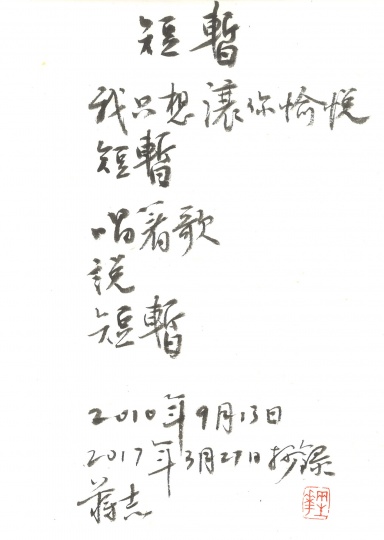 短暫
我只想讓你愉悦
短暫
唱着歌
說
短暫
2010年9月13日
2017年3月27日抄錄
蔣志